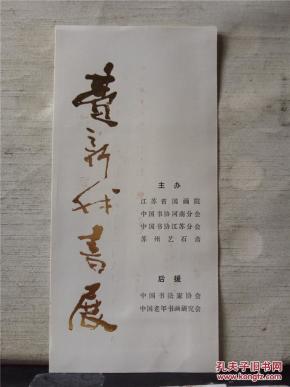 費新我書展
主办
江苏省国画院
中国书协河南分会
中国书协江苏分会
苏州艺石斋
后援
中国书法家协会
中国老年书画研究会
孔夫子旧书网